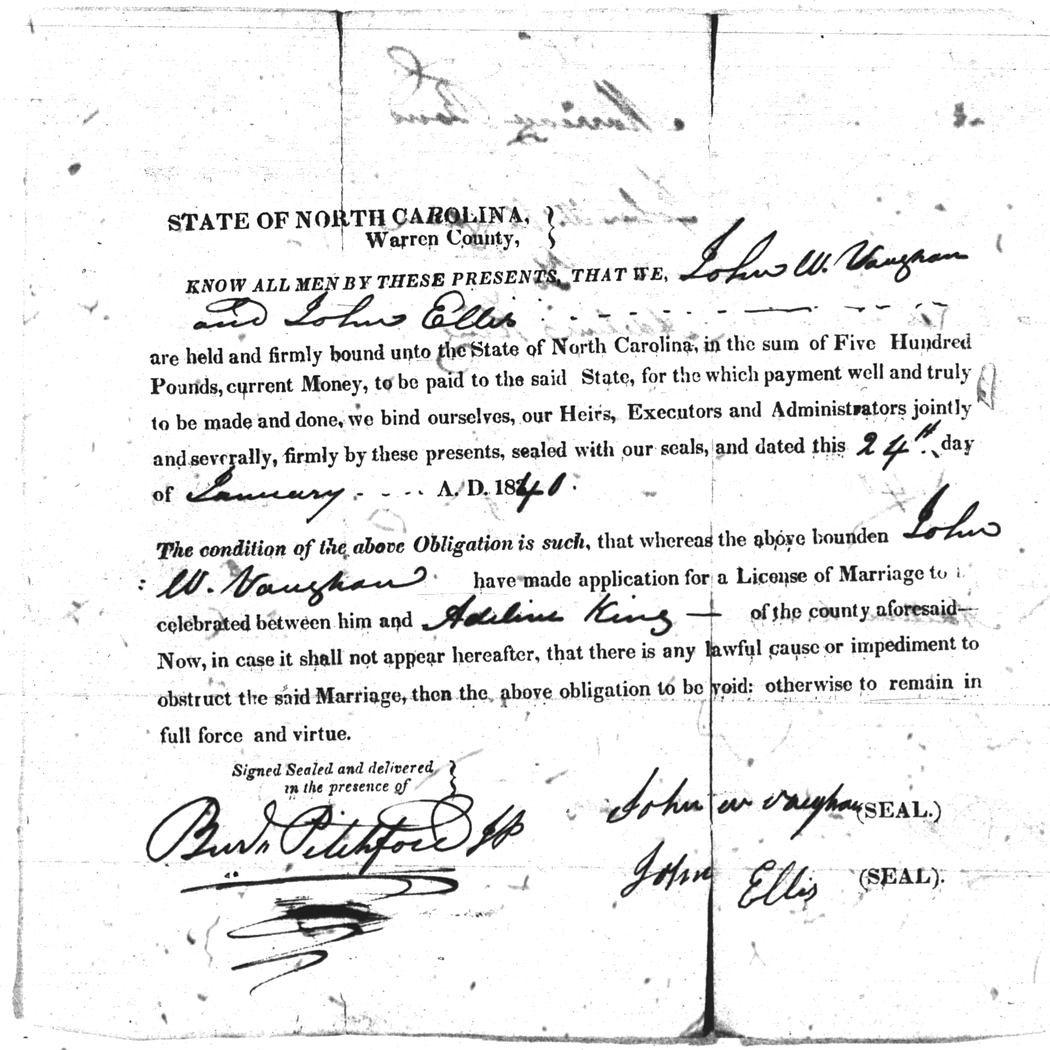 STATE OF NORTH CAROLINA,
Warren County,
KNOW ALL MEN BY THESE PRESENTS, THAT WE, John W. Vaughan
and John Ellis
are held and firmly bound unto the State of North Carolina, in the sum of Five Hundred
Pounds, current Money, to be paid to the said State, for the which payment well and truly
to be made and done, we bind ourselves, our Heirs, Executors and Administrators jointly
and severally, firmly by these presents, sealed with our seals, and dated this 24th day
of January - - - - A. D. 1840.
The condition of the above Obligation is such, that whereas the above bounden John
W. Vaughan have made application for a License of Marriage to
celebrated between him and Adeline King — of the county aforesaid—
Now, in case it shall not appear hereafter, that there is any lawful cause or impediment to
obstruct the said Marriage, then the above obligation to be void: otherwise to remain in
full force and virtue.
Signed Sealed and delivered
in the presence of
Pitchford JP
John W Vaughan (SEAL.)
John Ellis (SEAL).